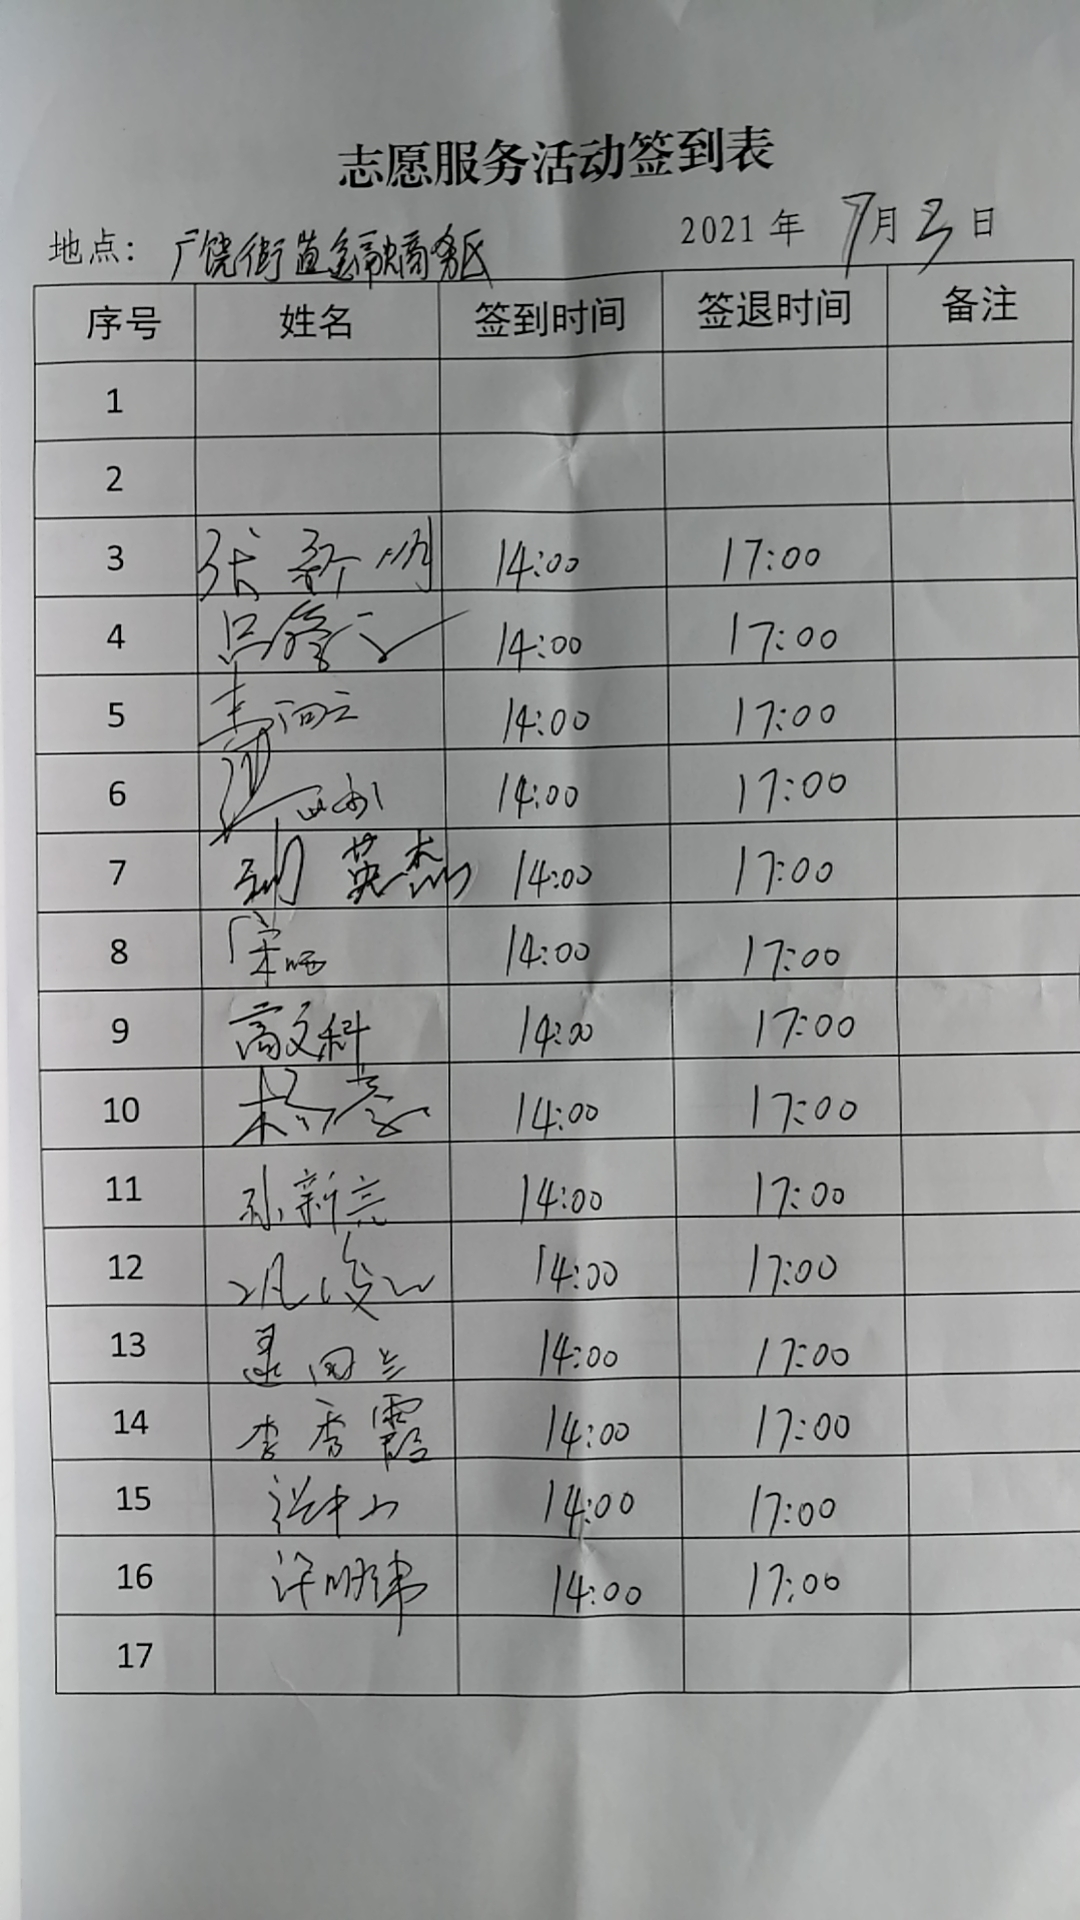 志愿服务活动签到表
地点： 广饶街道金融商务区 2021年 7月3日
序号 姓名 签到时间 签退时间 备注
1
2
3 张新明 14:00 17:00
4 吕 14:00 17:00
5 14:00 17:00
6 14:00 17:00
7 英杰 14:00 17:00
8 宋 14:00 17:00
9 高文科 14:00 17:00
10 杨 14:00 17:00
11 孙新亮 14:00 17:00
12 14:00 17:00
13 14:00 17:00
14 李秀霞 14:00 17:00
15 14:00 17:00
16 许明伟 14:00 17:00
17